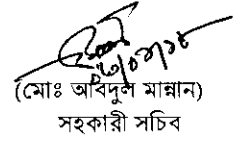 (মোঃ আবিদুল মান্নান)
সহকারী সচিব